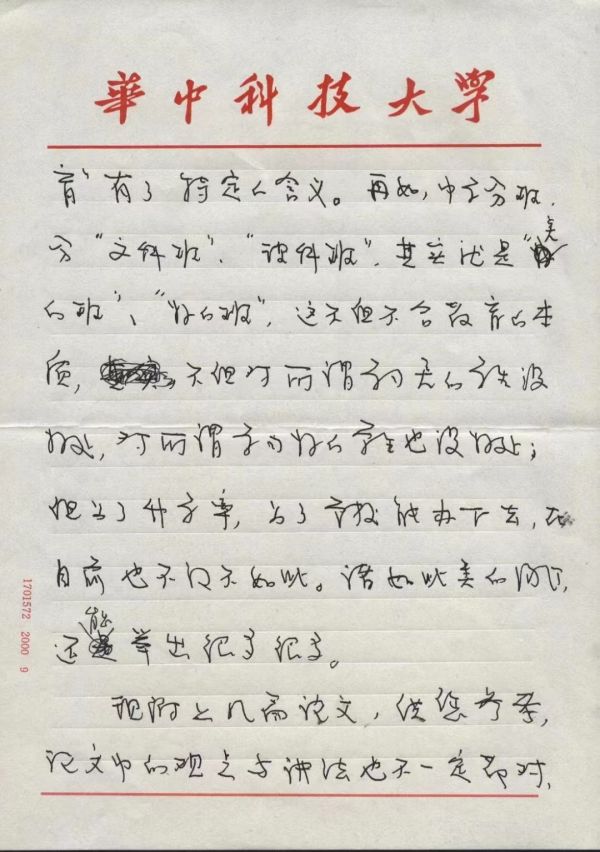 華中科技大学
育”有了特定的含义。再如,中学分班,
分“文科班”、“理科班”,其实就是“差
的班”、“好的班”,这不但不合教育的本
质,不但对所谓学得差的学生没
好处,对所谓学的好的学生也没好处;
但为了升学率,为了学校能办下去,在
目前也不得不如此。诸如此类的例子,
还能举出很多很多。
现附上几篇论文,供您参考,
论文中的观点与讲法也不一定都对,
1701572 2000 9